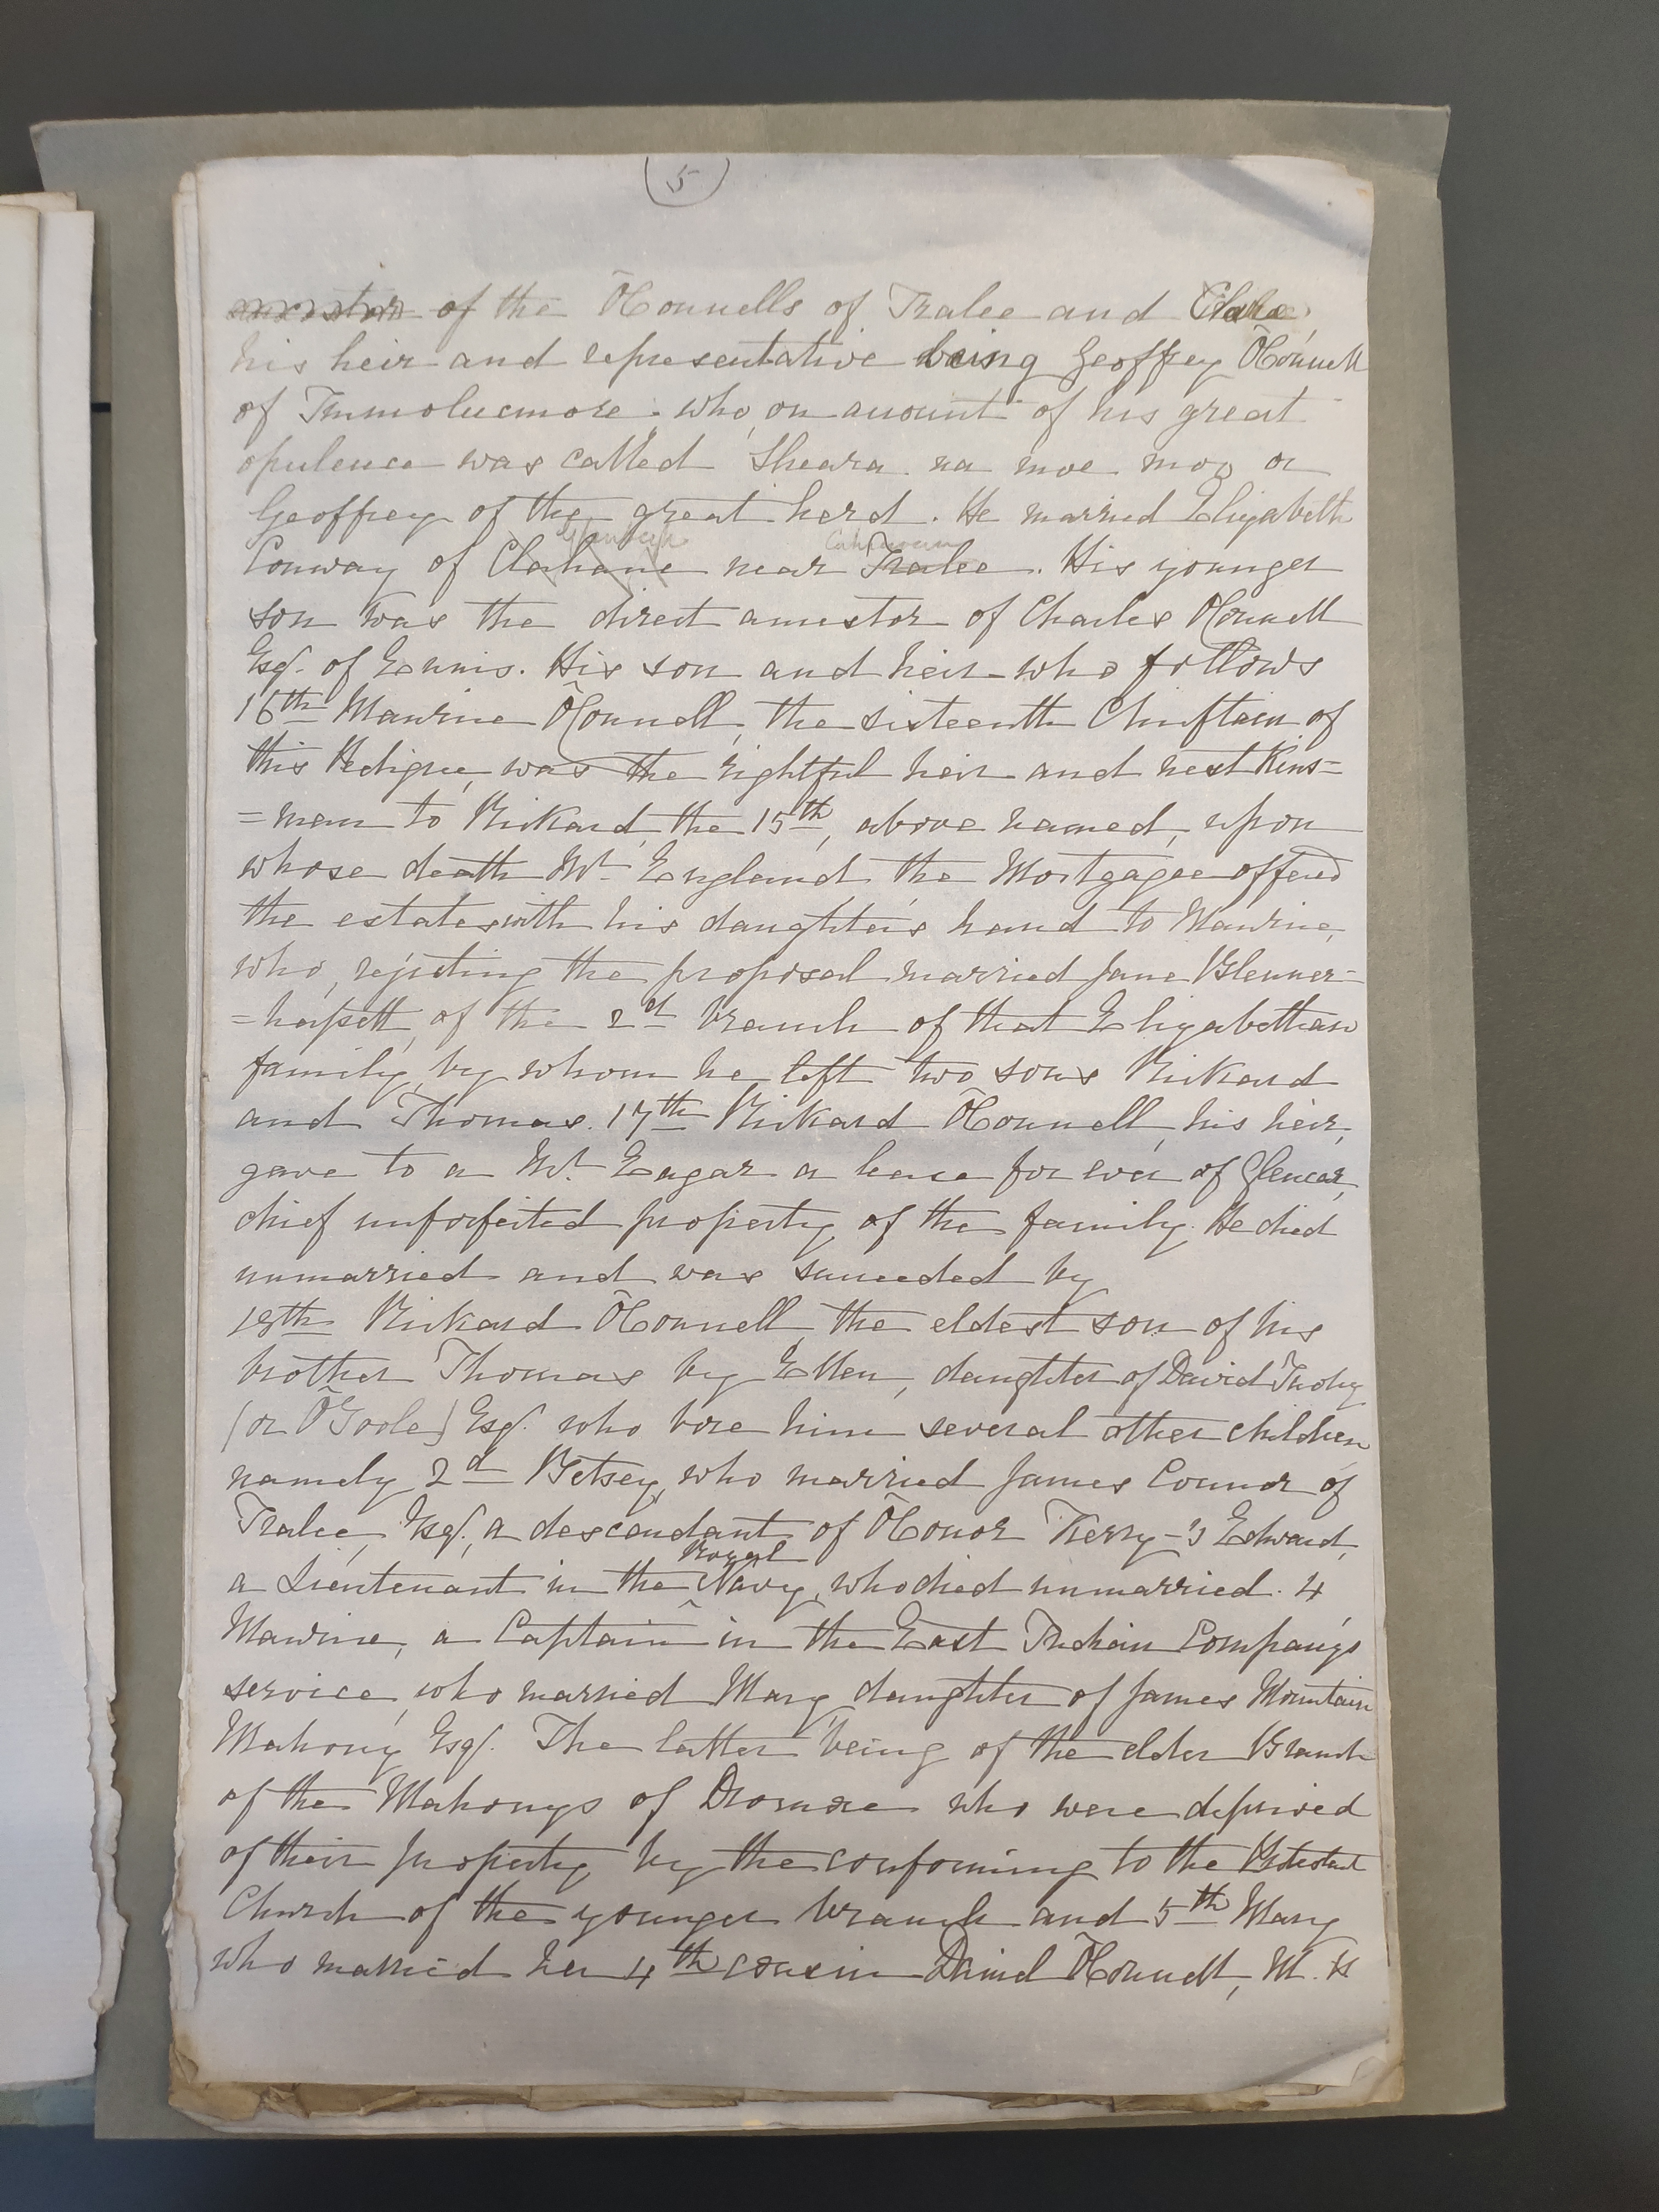 (5)
ancestor of the O'Connells of Tralee and Clare,
his heir and representative being Geoffrey O'Connell
of who, on account of his great
opulence was called Sheara na moe mor or
Geoffrey of the great herd. He married Elizabeth
Conway of Clahane near Tralee. His younger
son was the direct ancestor of Charles O'Connell
Esq. of Ennis. His son and heir who follows
16th Maurice O'Connell, the sixteenth Chieftain of
this Pedigree, was the rightful heir and next Kins=
=man to Rickard, the 15th, above named, upon
whose death Mr England the Mortgagee offered
the estates with his daughter's hand to Maurice,
who, rejecting the proposal married Jane Blenner=
=hassett, of the 2d branch of that Elizabethan
family, by whom he left two sons Rickard
and Thomas. 17th Rickard O'Connell, his heir,
gave to a Mr. Eagar a lease for ever of Glencar,
chief unforfeited property of the family. He died
unmarried and was succeeded by
18th Rickard O'Connell, the eldest son of his
brother Thomas by Ellen, daughter of David Tuohy
(or O'Toole) Esq. who bore him several other children
namely 2d Betsey, who married James Connor of
Tralee, Esq., a descendant of O'Conor Kerry - 3 Edward,
Royal
a Lieutenant in the Navy, who died unmarried. 4
Maurice, a Captain in the East Indian Company's
service, who married Mary daughter of James Mountain
Mahony Esq. The latter being of the elder Branch
of the Mahonys of Dromore who were deprived
of their property by the conforming to the Protestant
Church of the younger branch and 5th Mary
who married her 4th cousin Daniel O'Connell, M.